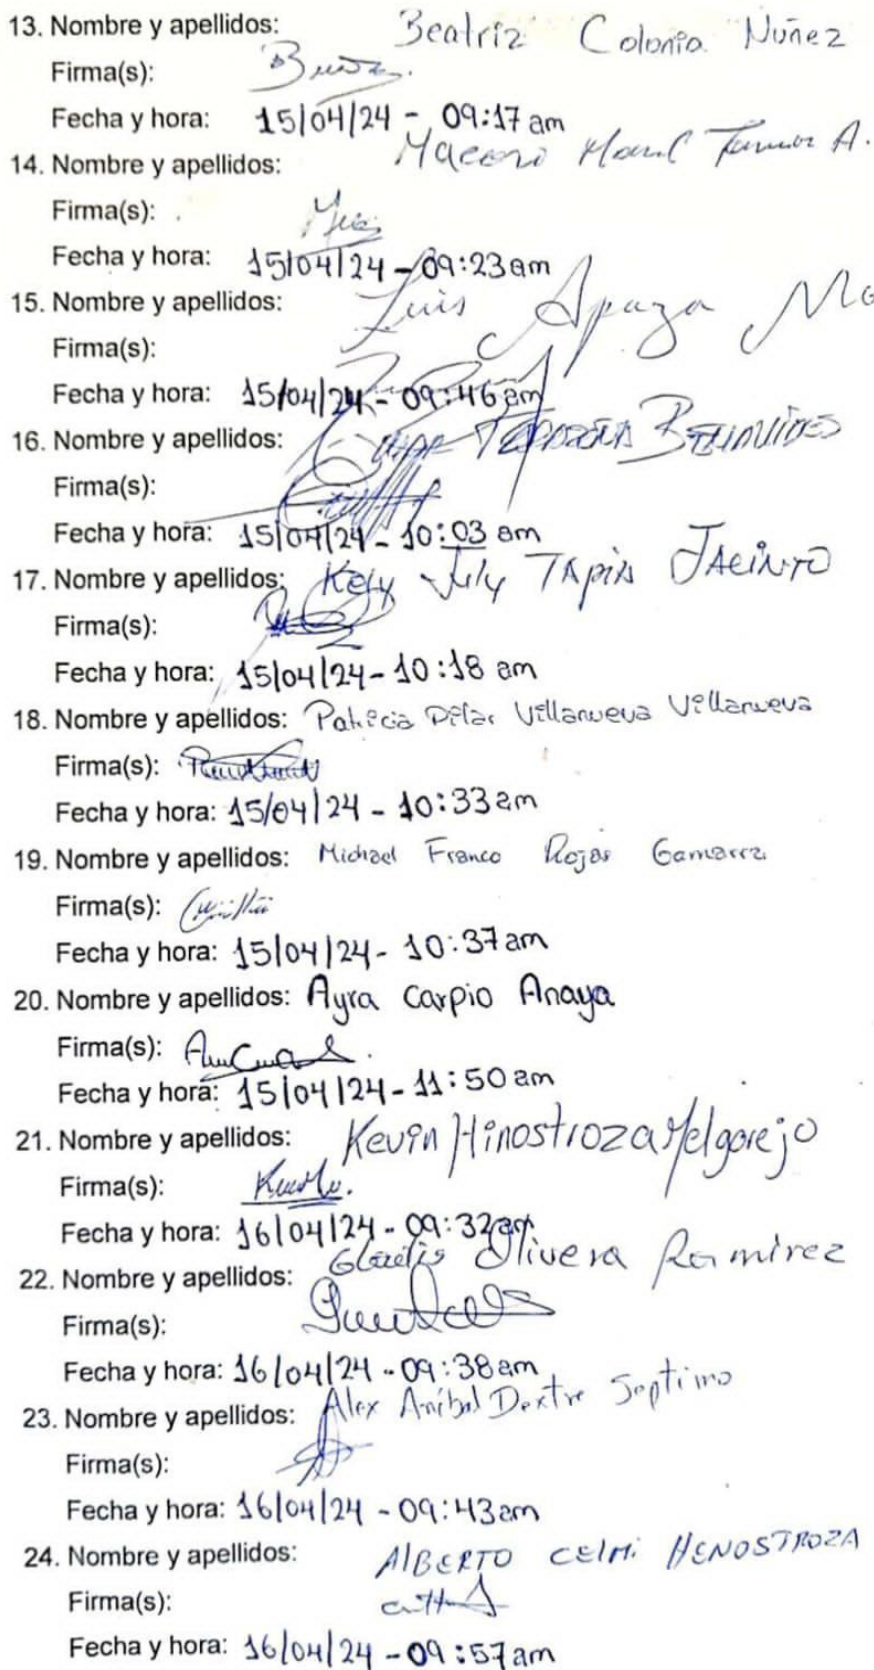 13. Nombre y apellidos: Beatriz Colonia Nuñez
Firma(s):
Fecha y hora: 15/04/24 - 09:17 am
14. Nombre y apellidos: A.
Firma(s):
Fecha y hora: 15/04/24 - 09:23 am
15. Nombre y apellidos: Luis Apaza
Firma(s):
Fecha y hora: 15/04/24 - 09:46 am
16. Nombre y apellidos:
Firma(s):
Fecha y hora: 15/04/24 - 10:03 am
17. Nombre y apellidos: Kely July TApiA JAciNTO
Firma(s):
Fecha y hora: 15/04/24 - 10:18 am
18. Nombre y apellidos: Patricia Pilar Villanueva Villanueva
Firma(s):
Fecha y hora: 15/04/24 - 10:33 am
19. Nombre y apellidos: Michael Franco Rojas Gamarra
Firma(s):
Fecha y hora: 15/04/24 - 10:37 am
20. Nombre y apellidos: Ayra Carpio Anaya
Firma(s):
Fecha y hora: 15/04/24 - 11:50 am
21. Nombre y apellidos: Kevin Hinostroza Melgarejo
Firma(s):
Fecha y hora: 16/04/24 - 09:32 am
22. Nombre y apellidos: Olivera Ramirez
Firma(s):
Fecha y hora: 16/04/24 - 09:38 am
23. Nombre y apellidos: Alex Aníbal Dextre Septimo
Firma(s):
Fecha y hora: 16/04/24 - 09:43 am
24. Nombre y apellidos: AlBERTO CElMi HENOSTROZA
Firma(s):
Fecha y hora: 16/04/24 - 09:57 am